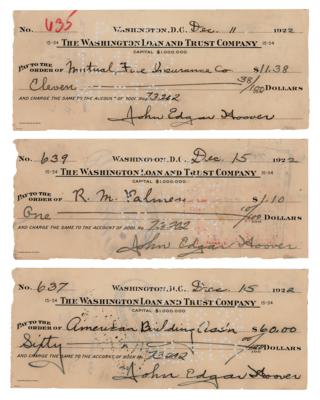 No. 635 WASHINGTON, D.C. Dec 11 1922
15-54 THE WASHINGTON LOAN AND TRUST COMPANY 15-54
CAPITAL $1,000,000
PAY TO THE
ORDER OF Mutual Fire Insurance Co $11.38
Eleven 38/100 DOLLARS
AND CHARGE THE SAME TO THE ACCOUNT OF BOOK No.
John Edgar Hoover
No. 639 WASHINGTON, D.C. Dec. 15 1922
15-54 THE WASHINGTON LOAN AND TRUST COMPANY 15-54
CAPITAL $1,000,000
PAY TO THE
ORDER OF R. M. Palmer $1.10
One 10/100 DOLLARS
AND CHARGE THE SAME TO THE ACCOUNT OF BOOK No.
John Edgar Hoover
No. 637 WASHINGTON, D.C. Dec 15 1922
15-54 THE WASHINGTON LOAN AND TRUST COMPANY 15-54
CAPITAL $1,000,000
PAY TO THE
ORDER OF American Building Ass'n $60.00
Sixty DOLLARS
AND CHARGE THE SAME TO THE ACCOUNT OF BOOK No.
John Edgar Hoover